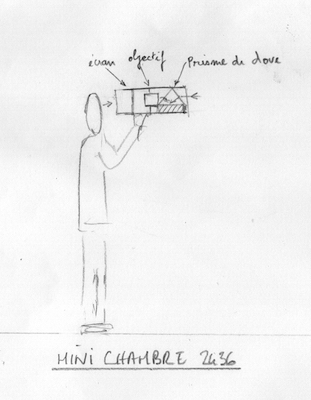 écran objectif Prisme de dove
MINI CHAMBRE 2436